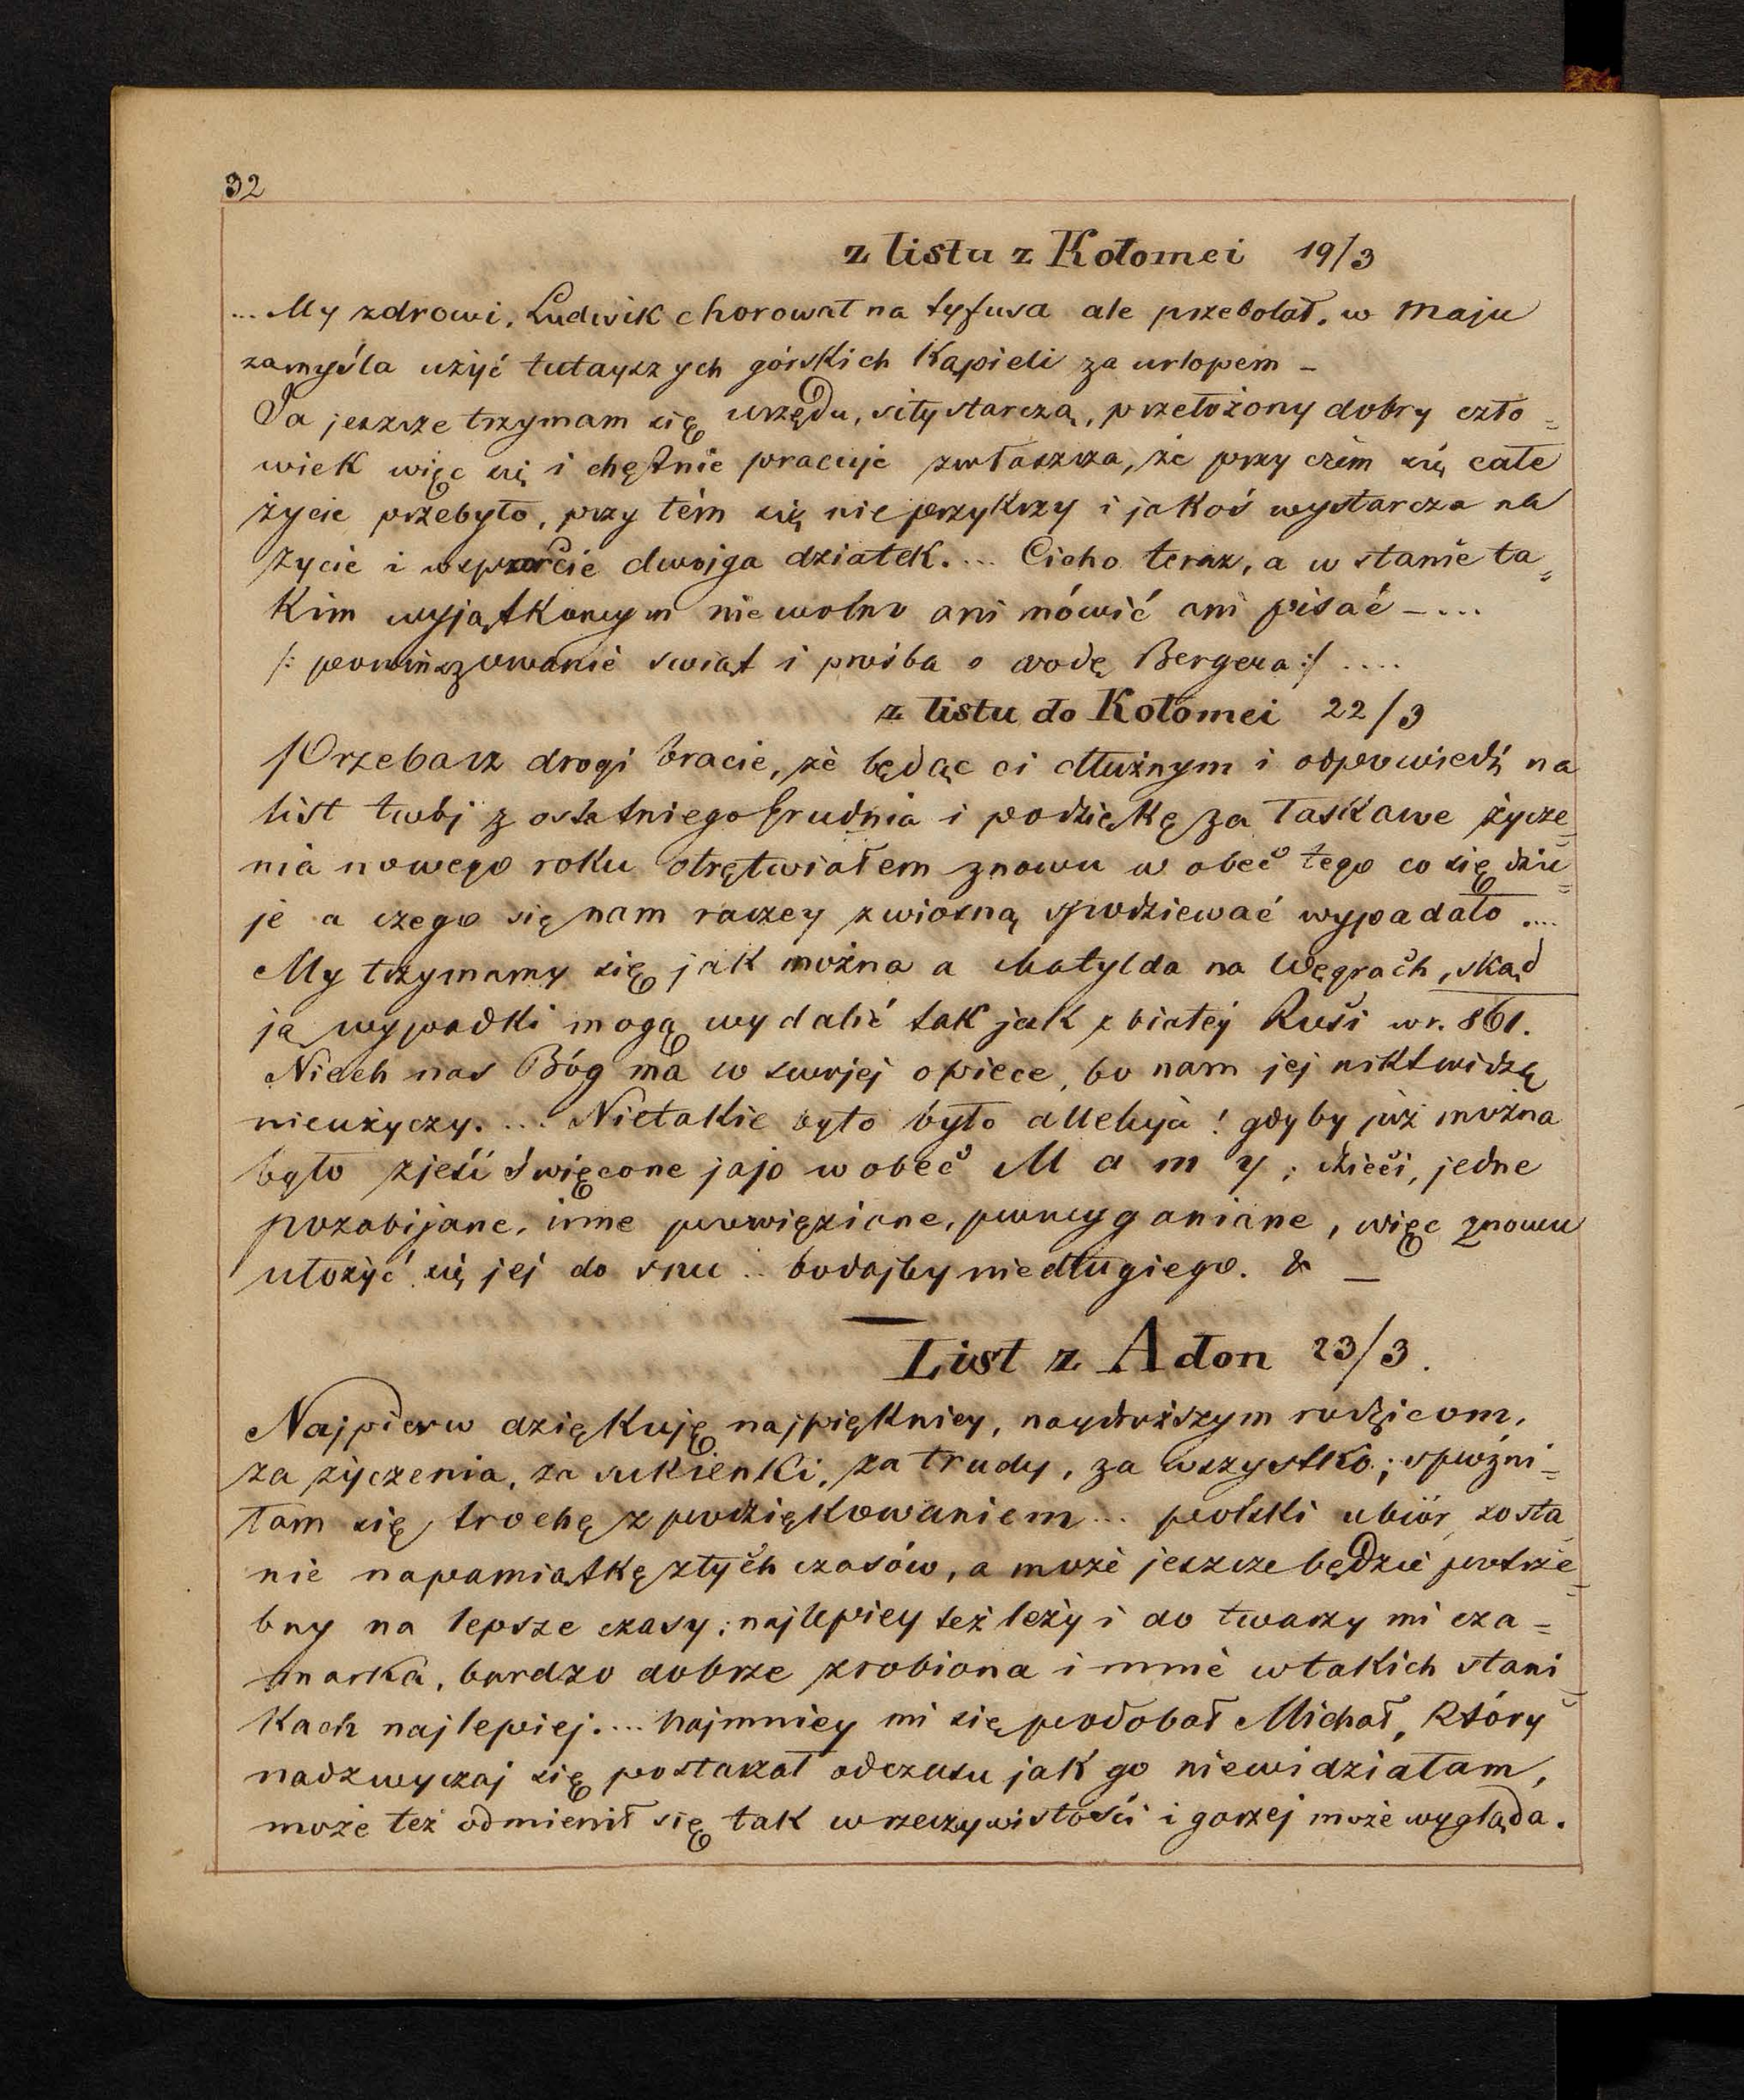 32
z listu z Kołomei 19/3
... My zdrowi, Ludwik chorował na tyfusa ale przebolał, w maju
zamyśla użyć tutayszych górskich Kąpieli za urlopem –
Ja jeszcze trzymam się urzędu, siły starczą, przełożony dobry czło=
wiek więc się i chętnie pracuje zwłaszcza, że przy czém się całe
życie przebyło, przy tém się nie przykrzy i jakoś wystarcza na
życie i wsparcie dwojga dziatek.... Cicho teraz, a w stanie ta=
Kim wyjątkowym nie wolno ani mówić ani pisać – ...
/: powinszowanie świąt i prośba o wodę Bergera :/ ....
z listu do Kołomei 22/3
Przebacz drogi bracie, że będąc ci dłużnym i odpowiedź na
list twój z ostatniego Grudnia i podziękę za łaskawe życze=
nia nowego roku otrętwiałem znowu w obec tego co się dzie=
je a czego się nam raczey z wiosną spodziewać wypadało ....
My trzymamy się jak można a Matylda na Węgrach, skąd
ją wypadki mogą wydalić tak jak z białéj Rusi w r. 861.
Niech nas Bóg ma w swojej opiece, bo nam jej nikt widzę
nieużyczy. ... Nietakie było było alleluja! gdyby już można
było zjeść święcone jajo w obec M a m y; dzieci, jedne
pozabijane, inne powięzione, powyganiane, więc znowu
ułożyć się jej do snu .. bodajby niedługiego. & –
List z Adon 23/3.
Najpierw dziękuję najpiękniey, naydroższym rodzicom,
za życzenia, za sukienki, za trudy, za wszystko; spóźni=
łam się trochę z podziękowaniem... polski ubiór zosta
nie napamiątkę złych czasów, a może jeszcze będzie potrze=
bny na lepsze czasy; najlepiey też leży i do twarzy mi cza=
marka, bardzo dobrze zrobiona i mnie w takich stani=
kach najlepiej.... najmniey mi się podobał Michał, który
nadzwyczaj się postarzał odczasu jak go niewidziałam,
może też odmienił się tak w rzeczywistości i gorzej może wygląda.